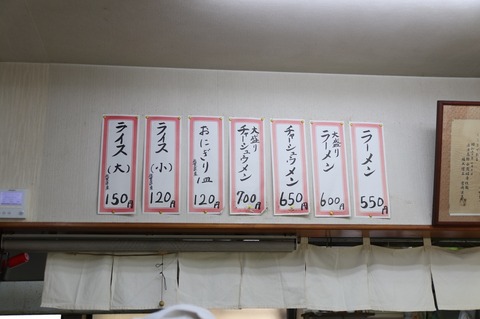 ラーメン
550円
大盛り
ラーメン
600円
チャーシュウメン
650円
大盛り
チャーシュウメン
700円
おにぎり一皿
120円
ライス(小)
120円
ライス(大)
150円